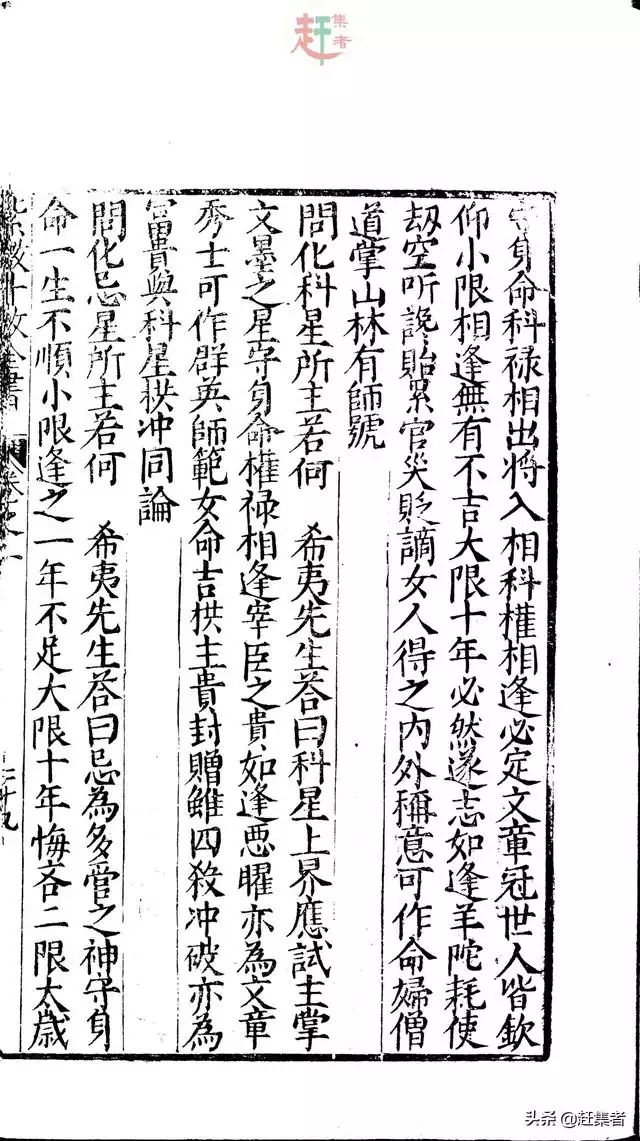 赶集者
守身命科禄相出將入相科權相逢必定文章冠世人皆欽
仰小限相逢無有不吉大限十年必然遂志如逢羊陀耗使
刼空听讒貽累官災貶謫女人得之内外稱意可作命婦僧
道掌山林有師號
問化科星所主若何 希夷先生荅曰科星上界應試主掌
文墨之星守身命權禄相逢宰臣之貴如逢惡曜亦為文章
秀士可作群英師範女命吉拱主貴封贈雖四殺冲破亦為
富貴與科星拱冲同論
問化忌星所主若何 希夷先生荅曰忌為多管之神守身
命一生不順小限逢之一年不足大限十年悔吝二限太歲
紫微斗數全書 卷之二 二十九
头条 @赶集者